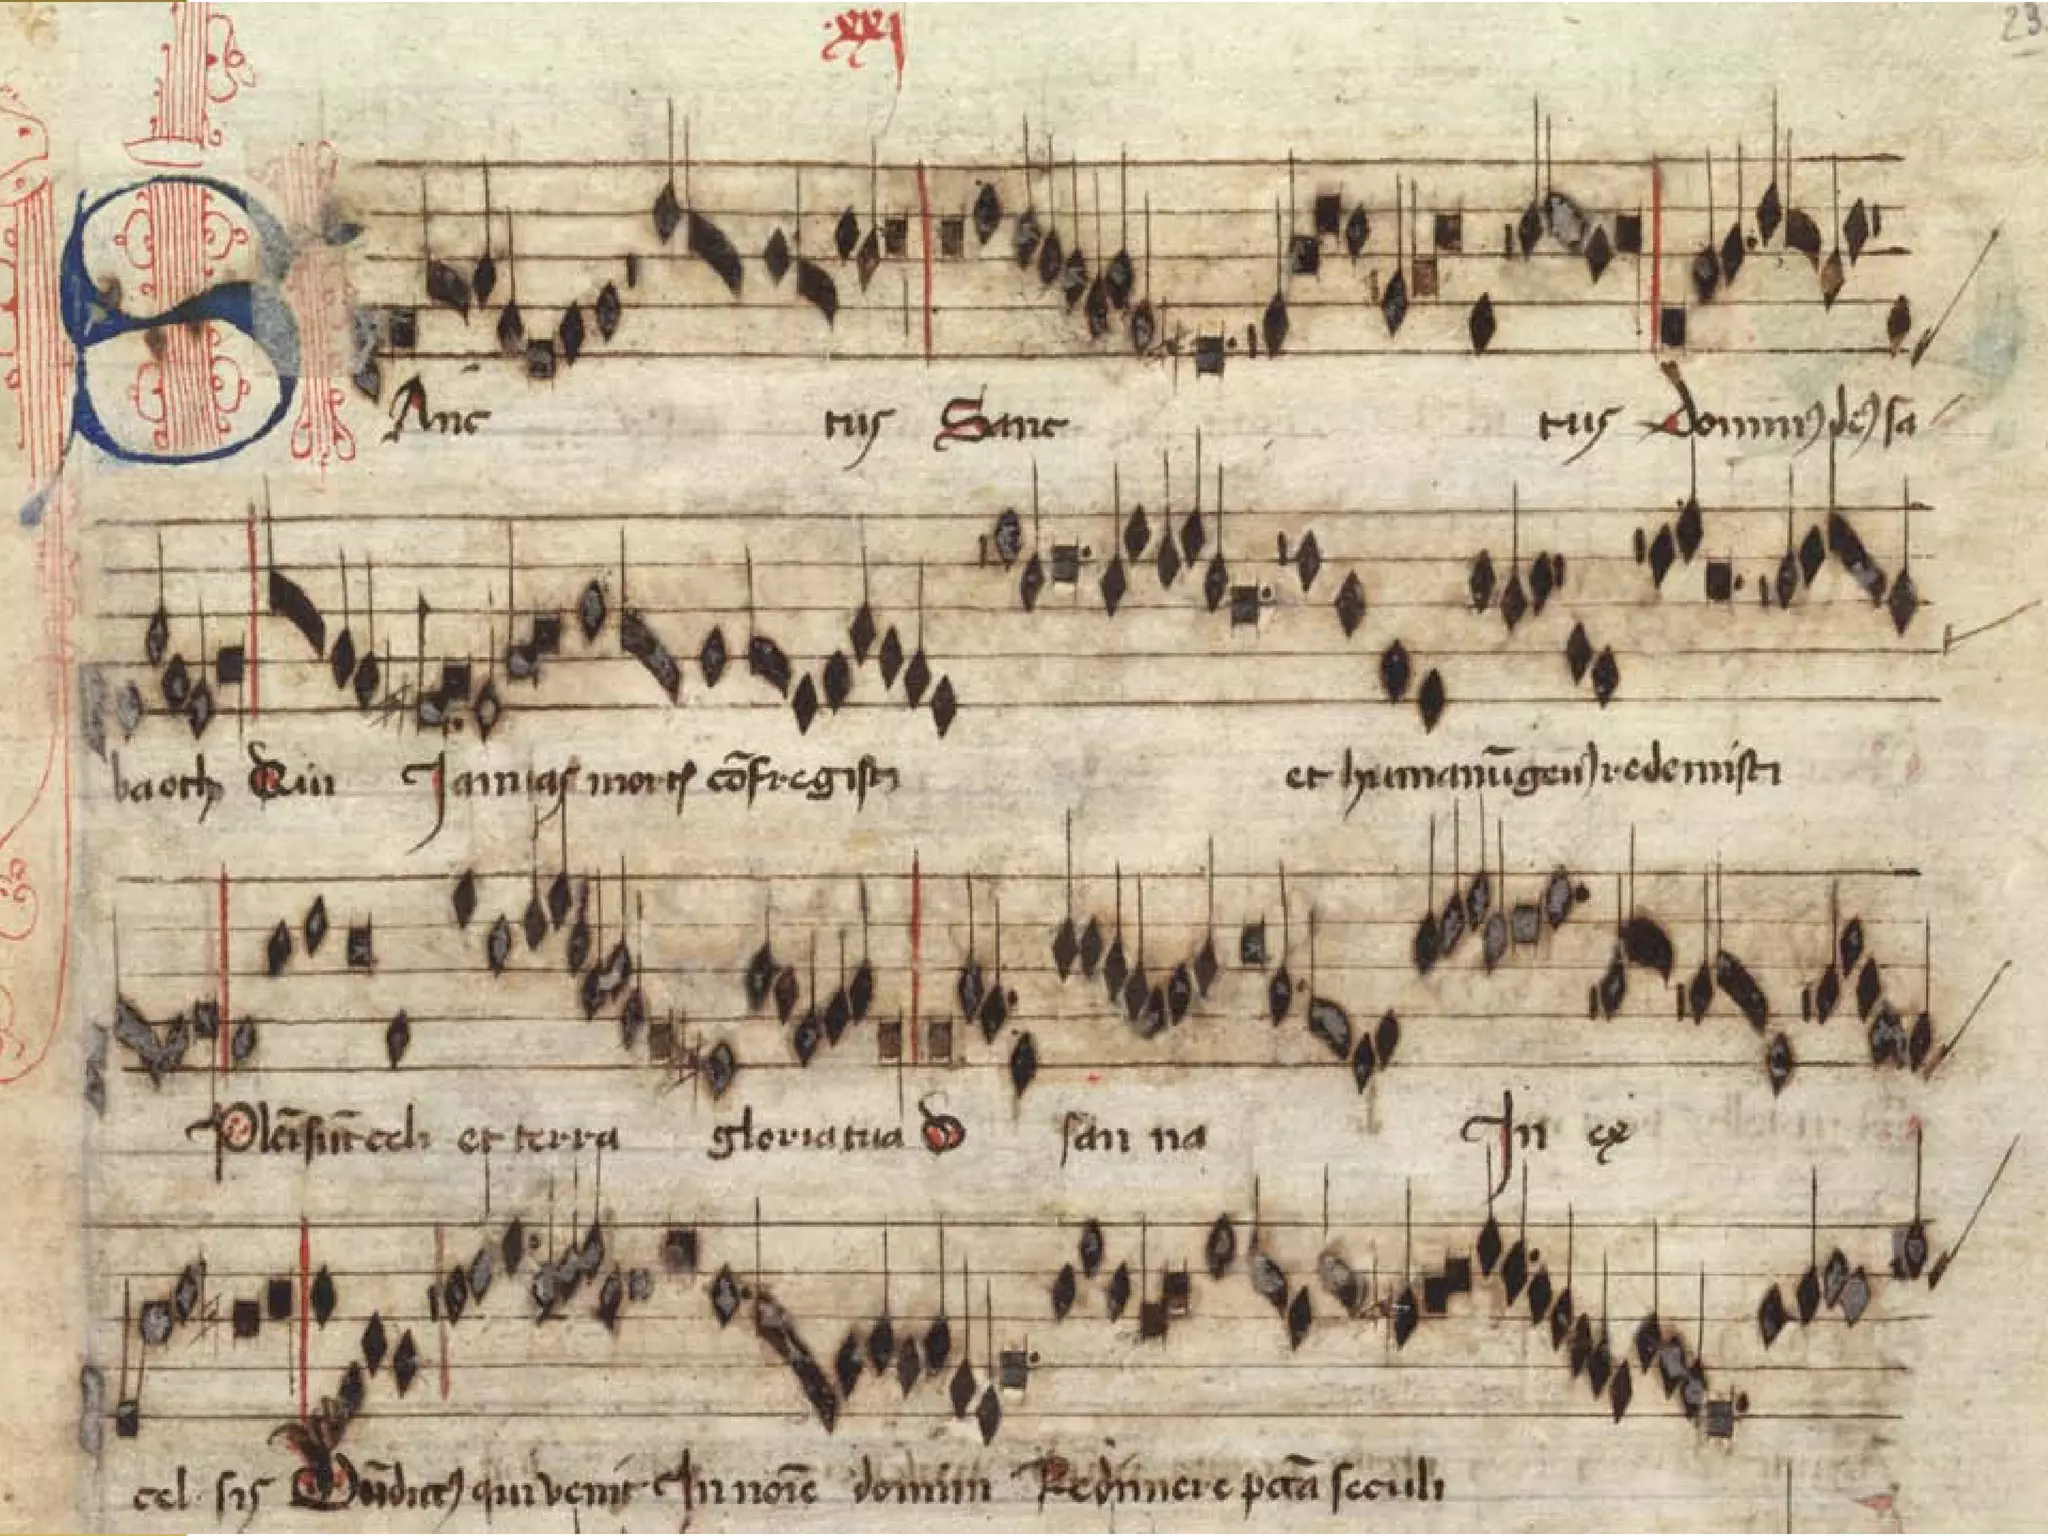 .xxj
23
SAnc tus Sanc tus Domin⁹ de⁹ sa
baoth Qui Januas mort͛ cōfregisti et humanū gen⁹ redemisti
Plēi sūt celi et terra gloria tua O san na In ex
cel sis Bn̄dict⁹ qui venit In noīe domini Redimere pctā seculi